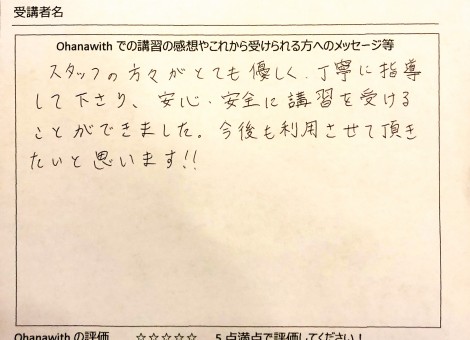 受講者名
Ohanawith での講習の感想やこれから受けられる方へのメッセージ等
スタッフの方々がとても優しく、丁寧に指導
して下さり、安心・安全に講習を受ける
ことができました。今後も利用させて頂き
たいと思います!!
Ohanawith の評価 ☆☆☆☆☆ 5 点満点で評価してください！